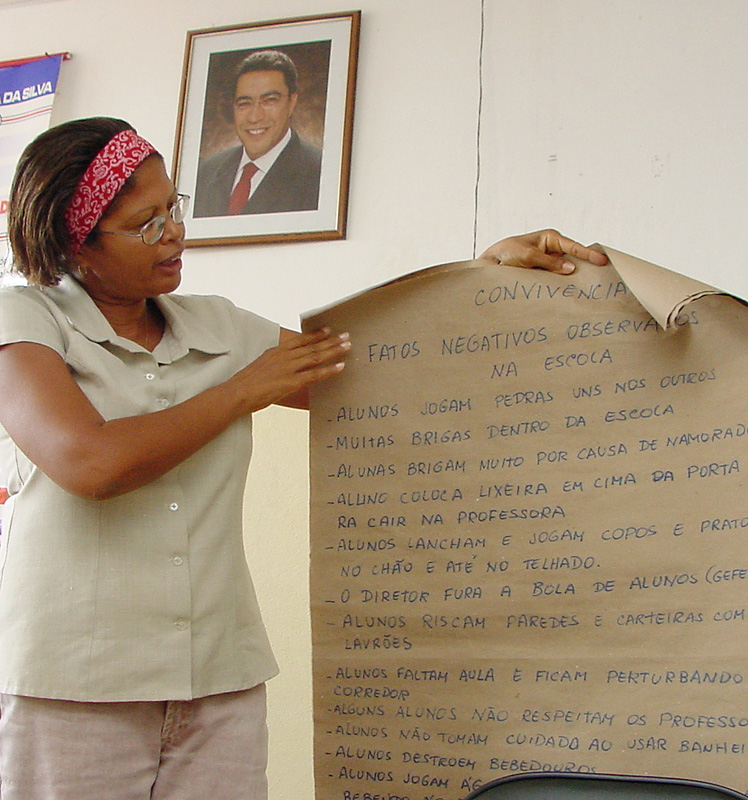 DA SILVA
CONVIVENCIA
FATOS NEGATIVOS OBSERVA OS
NA ESCOLA
- ALUNOS JOGAM PEDRAS UNS NOS OUTROS
- MUITAS BRIGAS DENTRO DA ESCOLA
- ALUNAS BRIGAM MUITO POR CAUSA DE NAMORAD
- ALUNO COLOCA LIXEIRA EM CIMA DA PORTA
RA CAIR NA PROFESSORA
- ALUNOS LANCHAM E JOGAM COPOS E PRATO
NO CHÃO E ATÉ NO TELHADO.
- O DIRETOR FURA A BOLA DE ALUNOS (GEFE
- ALUNOS RISCAM PAREDES E CARTEIRAS COM
LAVRÕES
- ALUNOS FALTAM AULA E FICAM PERTURBANDO
CORREDOR
- ALGUNS ALUNOS NÃO RESPEITAM OS PROFESSO
- ALUNOS NÃO TOMAM CUIDADO AO USAR BANHEI
- ALUNOS DESTROEM BEBEDOUROS
- ALUNOS JOGAM ÁG